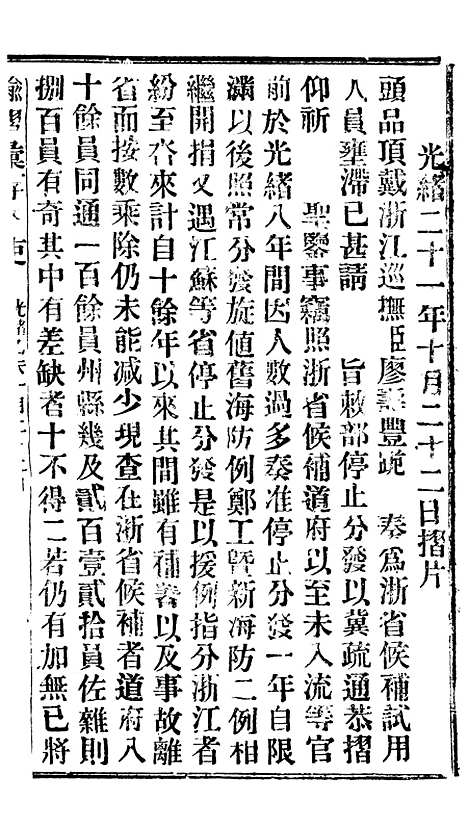 光緒二十一年十月二十二日摺片
頭品頂戴浙江巡撫臣廖壽豐跪　奏爲浙省候補試用
人員壅滯已甚請　旨敕部停止分發以冀疏通恭摺
仰祈　聖鑒事竊照浙省候補道府以至未入流等官
前於光緒八年間因人數過多奏准停止分發一年自限
滿以後照常分發旋値舊海防例鄭工暨新海防二例相
繼開捐又遇江蘇等省停止分發是以援例指分浙江者
紛至沓來計自十餘年以來其間雖有補署以及事故離
省而按數乘除仍未能減少現查在浙省候補者道府八
十餘員同通一百餘員州縣幾及貳百壹貳拾員佐雜則
捌百員有奇其中有差缺者十不得二若仍有加無已將
諭摺彙存